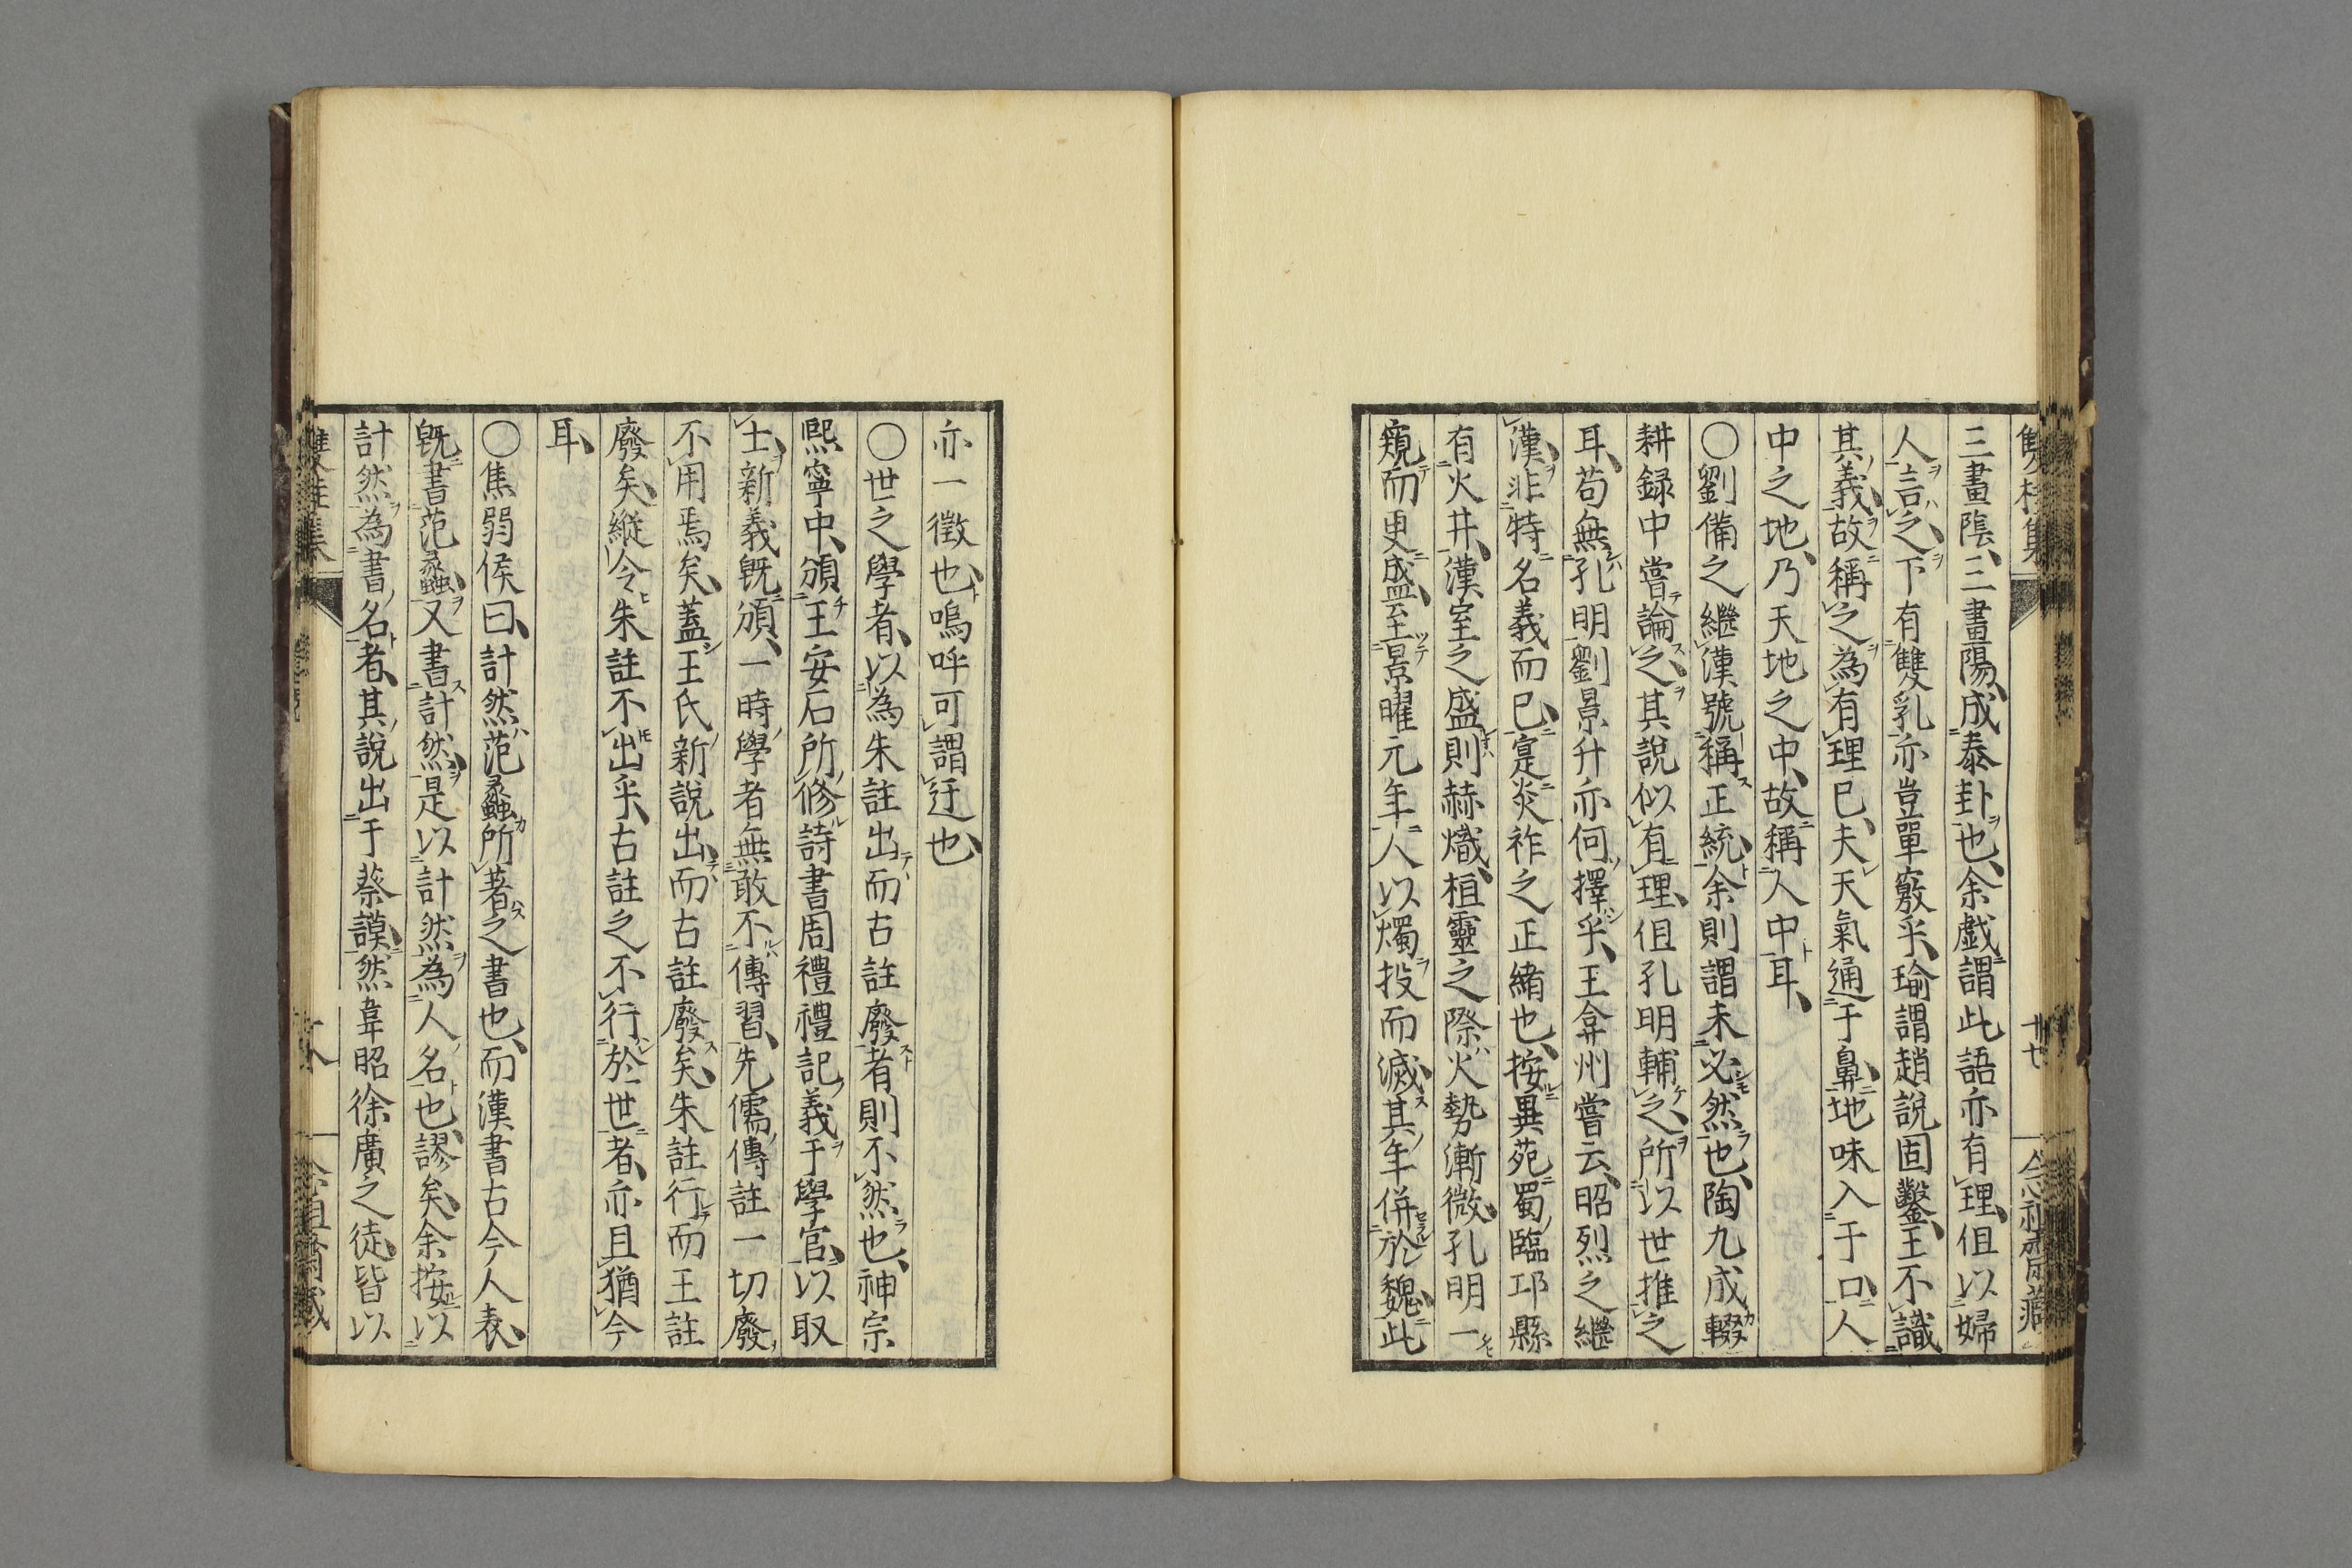 三畫陰、三畫陽、成泰卦也、余戲謂此語亦有理、但以婦
人言之、下有雙乳亦豈單竅乎、瑜謂趙說固鑿、王不識
其義、故稱之為有理已、夫天氣通于鼻、地味入于口、人
中之地、乃天地之中、故稱人中耳、
〇劉備之繼漢號稱正統、余則謂未必然也、陶九成輟
耕録中嘗論之、其說似有理、但孔明輔之、所以世推之
耳、苟無孔明、劉景升亦何擇乎、王弇州嘗云、昭烈之繼
漢、非特名義而已、寔炎祚之正緒也、按異苑、蜀臨邛縣
有火井、漢室之盛則赫熾、桓靈之際火勢漸微、孔明一
窺而更盛、至景曜元年、人以燭投而滅、其年併於魏、此
亦一徵也、嗚呼可謂迂也、
〇世之學者、以為朱註出而古註廢者則不然也、神宗
熙寧中、頒王安石所修詩書周禮禮記義于學官、以取
士、新義既頒、一時學者無敢不傳習、先儒傳註一切廢
不用焉矣、蓋王氏新說出、而古註廢矣、朱註行而王註
廢矣、縱令朱註不出乎、古註之不行於世者、亦且猶今
耳、
〇焦弱侯曰、計然范蠡所著之書也、而漢書古今人表、
既書范蠡、又書計然、是以計然為人名也、謬矣、余按以
計然為書名者、其說出于蔡謨、然韋昭徐廣之徒、皆以